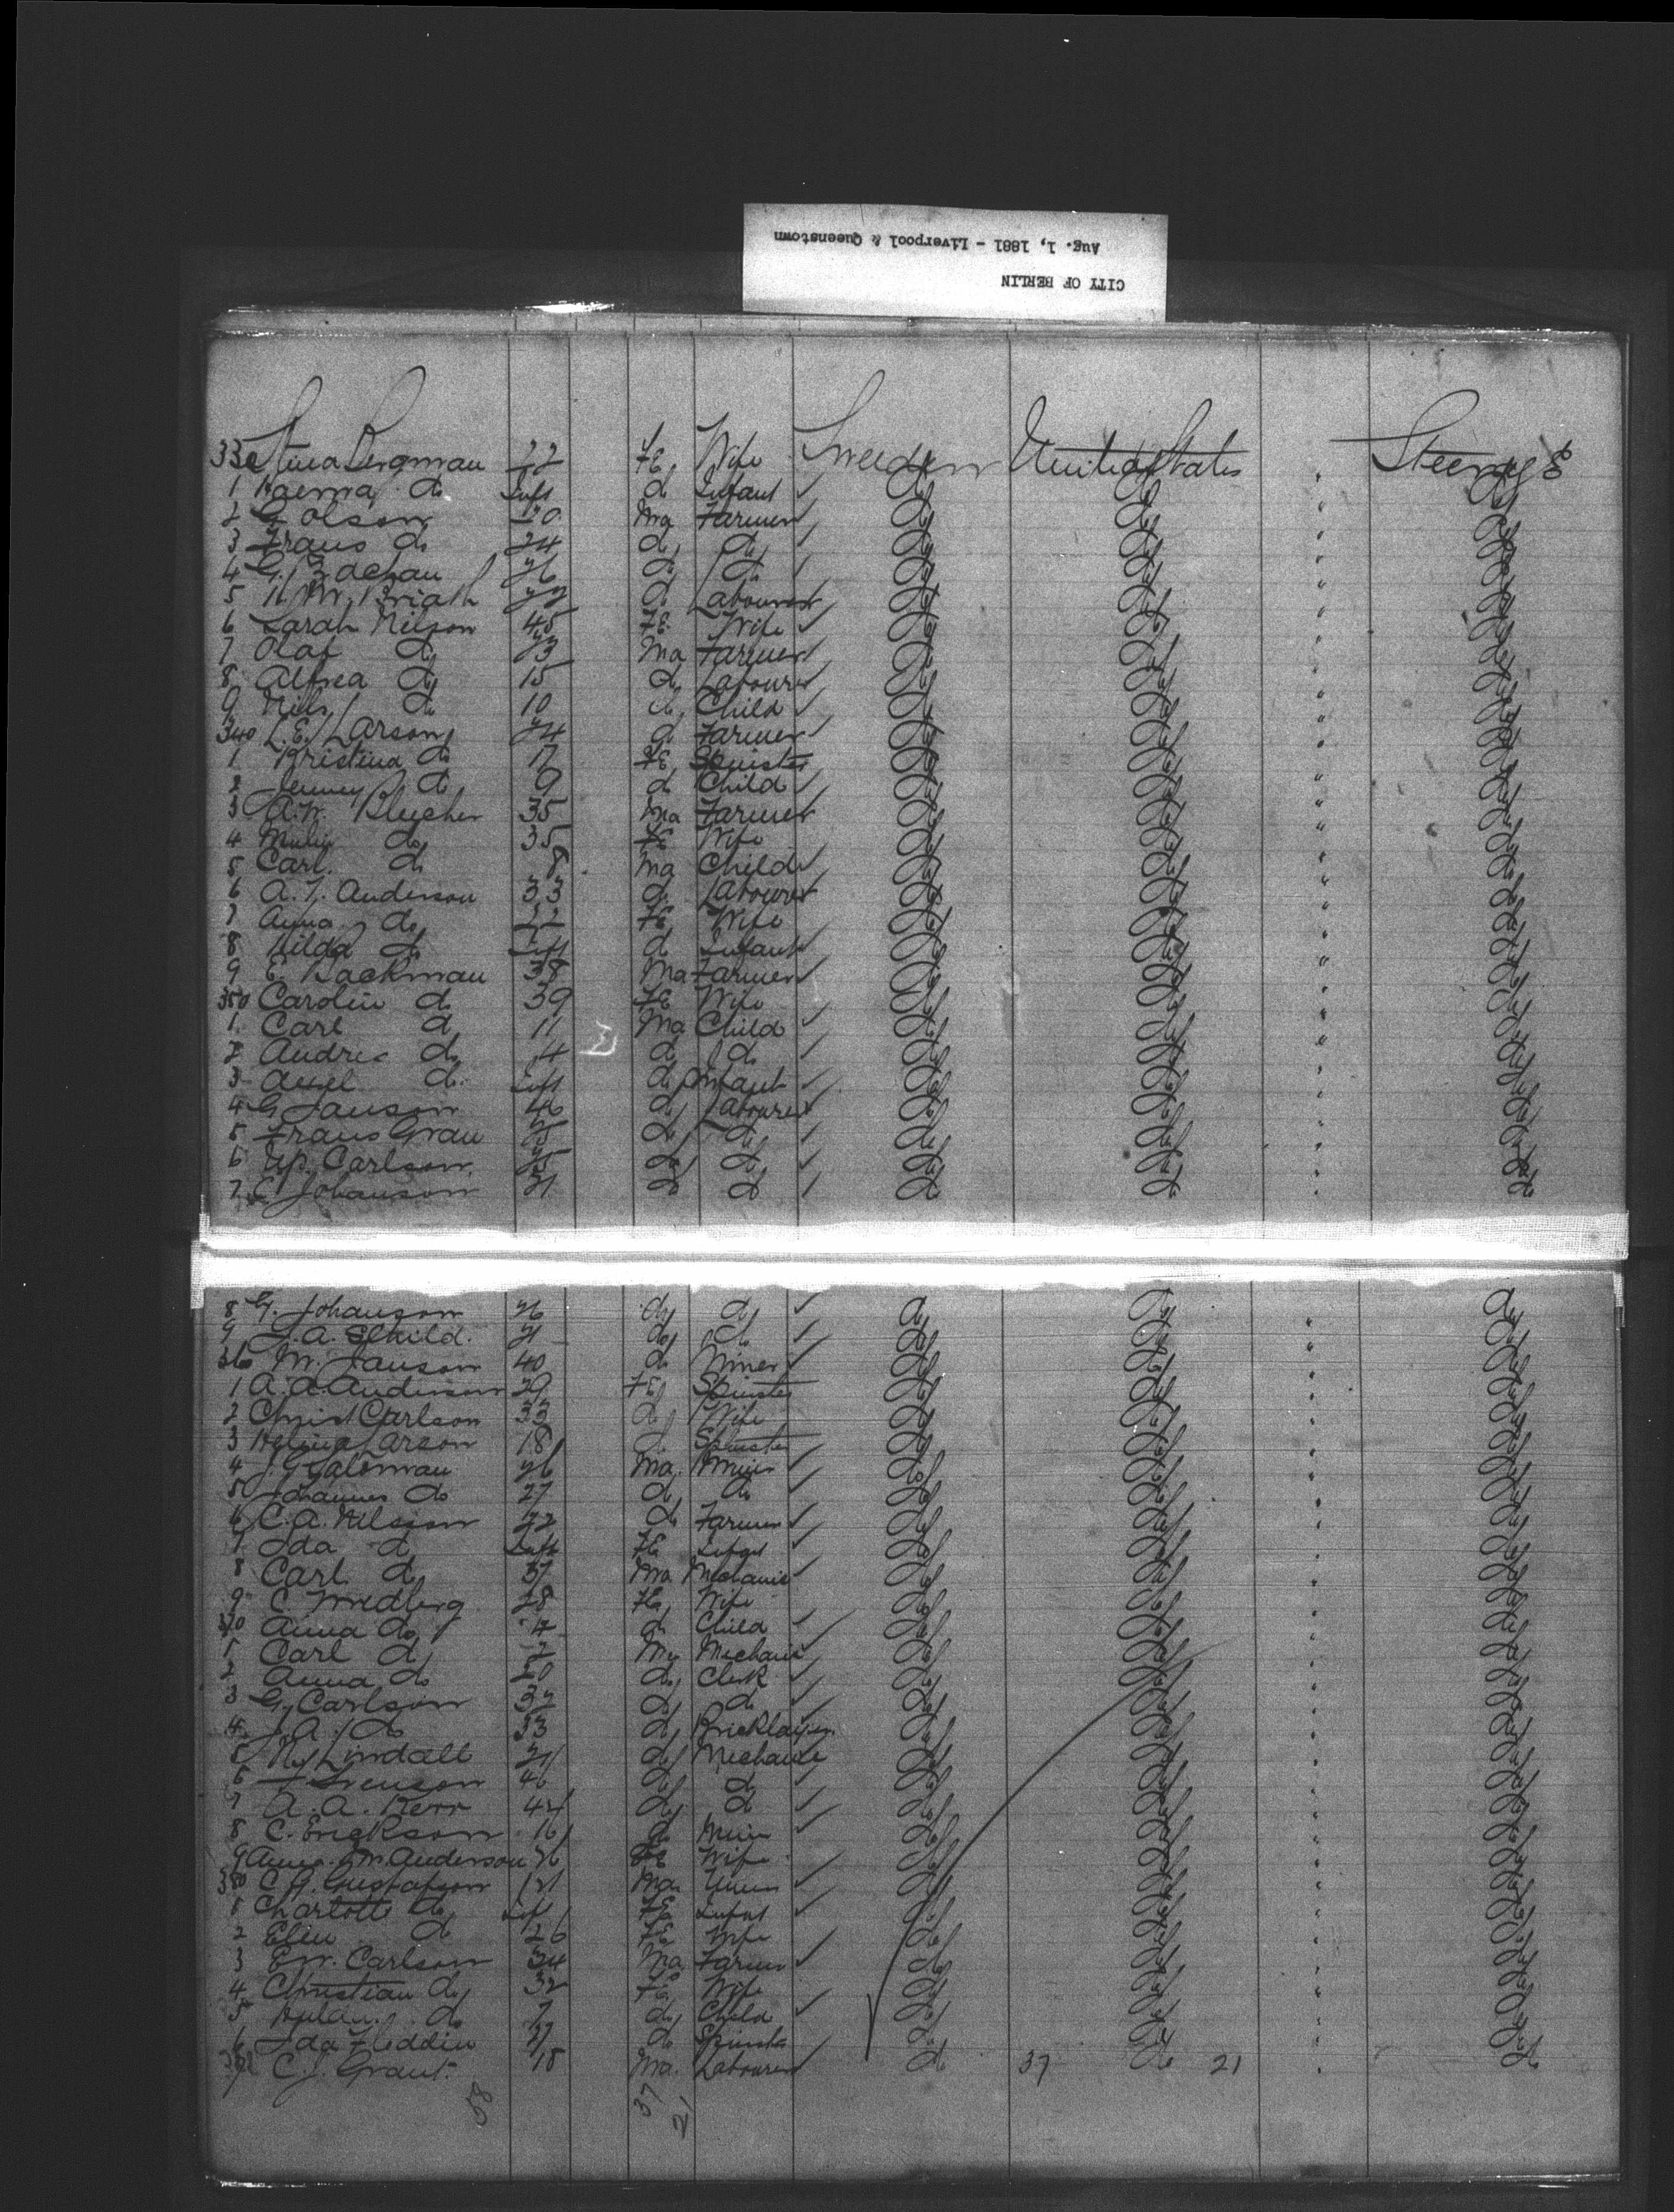 Aug. 1, 1881 - Liverpool & Queenstown
CITY OF BERLIN
330 Stina Bergman 22 FE Wife Sweden United States " Steerage
1 do Inft do Infant ✓ do do " do
2 G Olson 20 Ma Farmer ✓ do do " do
3 Frans do 24 do do ✓ do do " do
4 G. Zachau 26 do do ✓ do do " do
5 do Labourer ✓ do do " do
6 Sarah Nilson 45 FE Wife ✓ do do " do
7 Olaf do 23 Ma Farmer ✓ do do " do
8 Alfred do 15 do Labourer ✓ do do " do
9 Nils do 10 do Child ✓ do do " do
340 L.E. Larson 24 do Farmer ✓ do do " do
1 Kristina do 17 FE Spinster do do " do
2 Jenney do 9 do Child ✓ do do " do
3 A.W. Blucher 35 Ma Farmer do do " do
4 do 35 FE Wife do do " do
5 Carl do 8 Ma Child ✓ do do " do
6 A.J. Anderson 33 do Labourer do do " do
7 Anna do 22 FE Wife do do " do
8 Hilda do Inft do Infant ✓ do do " do
9 E. Backman 38 Ma Farmer ✓ do do " do
350 Carolin do 39 FE Wife do do " do
1 Carl do 11 Ma Child ✓ do do " do
2 Andrea do 4 do do ✓ do do " do
3 Axel do Inft do Infant ✓ do do " do
4 G Janson 46 do Labourer ✓ do do " do
5 Frans Grau 25 do do ✓ do do " do
6 Carlson 25 do do ✓ do do " do
7 E. Johanson 21 do do ✓ do do " do
8 G. Johanson 26 do do ✓ do do " do
9 J.A. 21 do do ✓ do do " do
360 M. Janson 40 do Miner ✓ do do " do
1 A.A. Anderson 29 FE Spinster do do " do
2 Christ Carlson 33 do Wife do do " do
3 Larson 18 do Spinster do do " do
4 26 Ma Miner ✓ do do " do
5 Johannes do 27 do do ✓ do do " do
6 C.A. Nilsson 22 do Farmer ✓ do do " do
7 Ida do Inft FE Infant do do " do
8 Carl do 37 Ma Mechanic do do " do
9 C. 28 FE Wife do do " do
370 Anna do 4 do Child ✓ do do " do
1 Carl do Ma Mechanic do do " do
2 Anna do 20 do Clerk ✓ do do " do
3 G. Carlson 32 do do ✓ do do " do
4 J.A. do 33 do Bricklayer do do " do
5 N. Lindall 21 do Mechanic do do " do
6 J Svenson 46 do do ✓ do do " do
7 A.A. Kerr 44 do do ✓ do do " do
8 C. Erickson 16 do Miner ✓ do do " do
9 Anna M. Anderson 26 FE Wife do do " do
380 C.A. Gustafson 21 Ma Miner ✓ do do " do
1 Charlotte do Inf FE Infant ✓ do do " do
2 Elen do 26 FE Wife do do " do
3 E.W. Carlson 34 Ma Farmer ✓ do do " do
4 Christian do 32 FE Wife do do " do
5 do 7 do Child ✓ do do " do
6 Ida do Spinster do do " do
7 C.J. Grant 18 Ma. Labourer ✓ do 37 do 21 " do
58 37 21